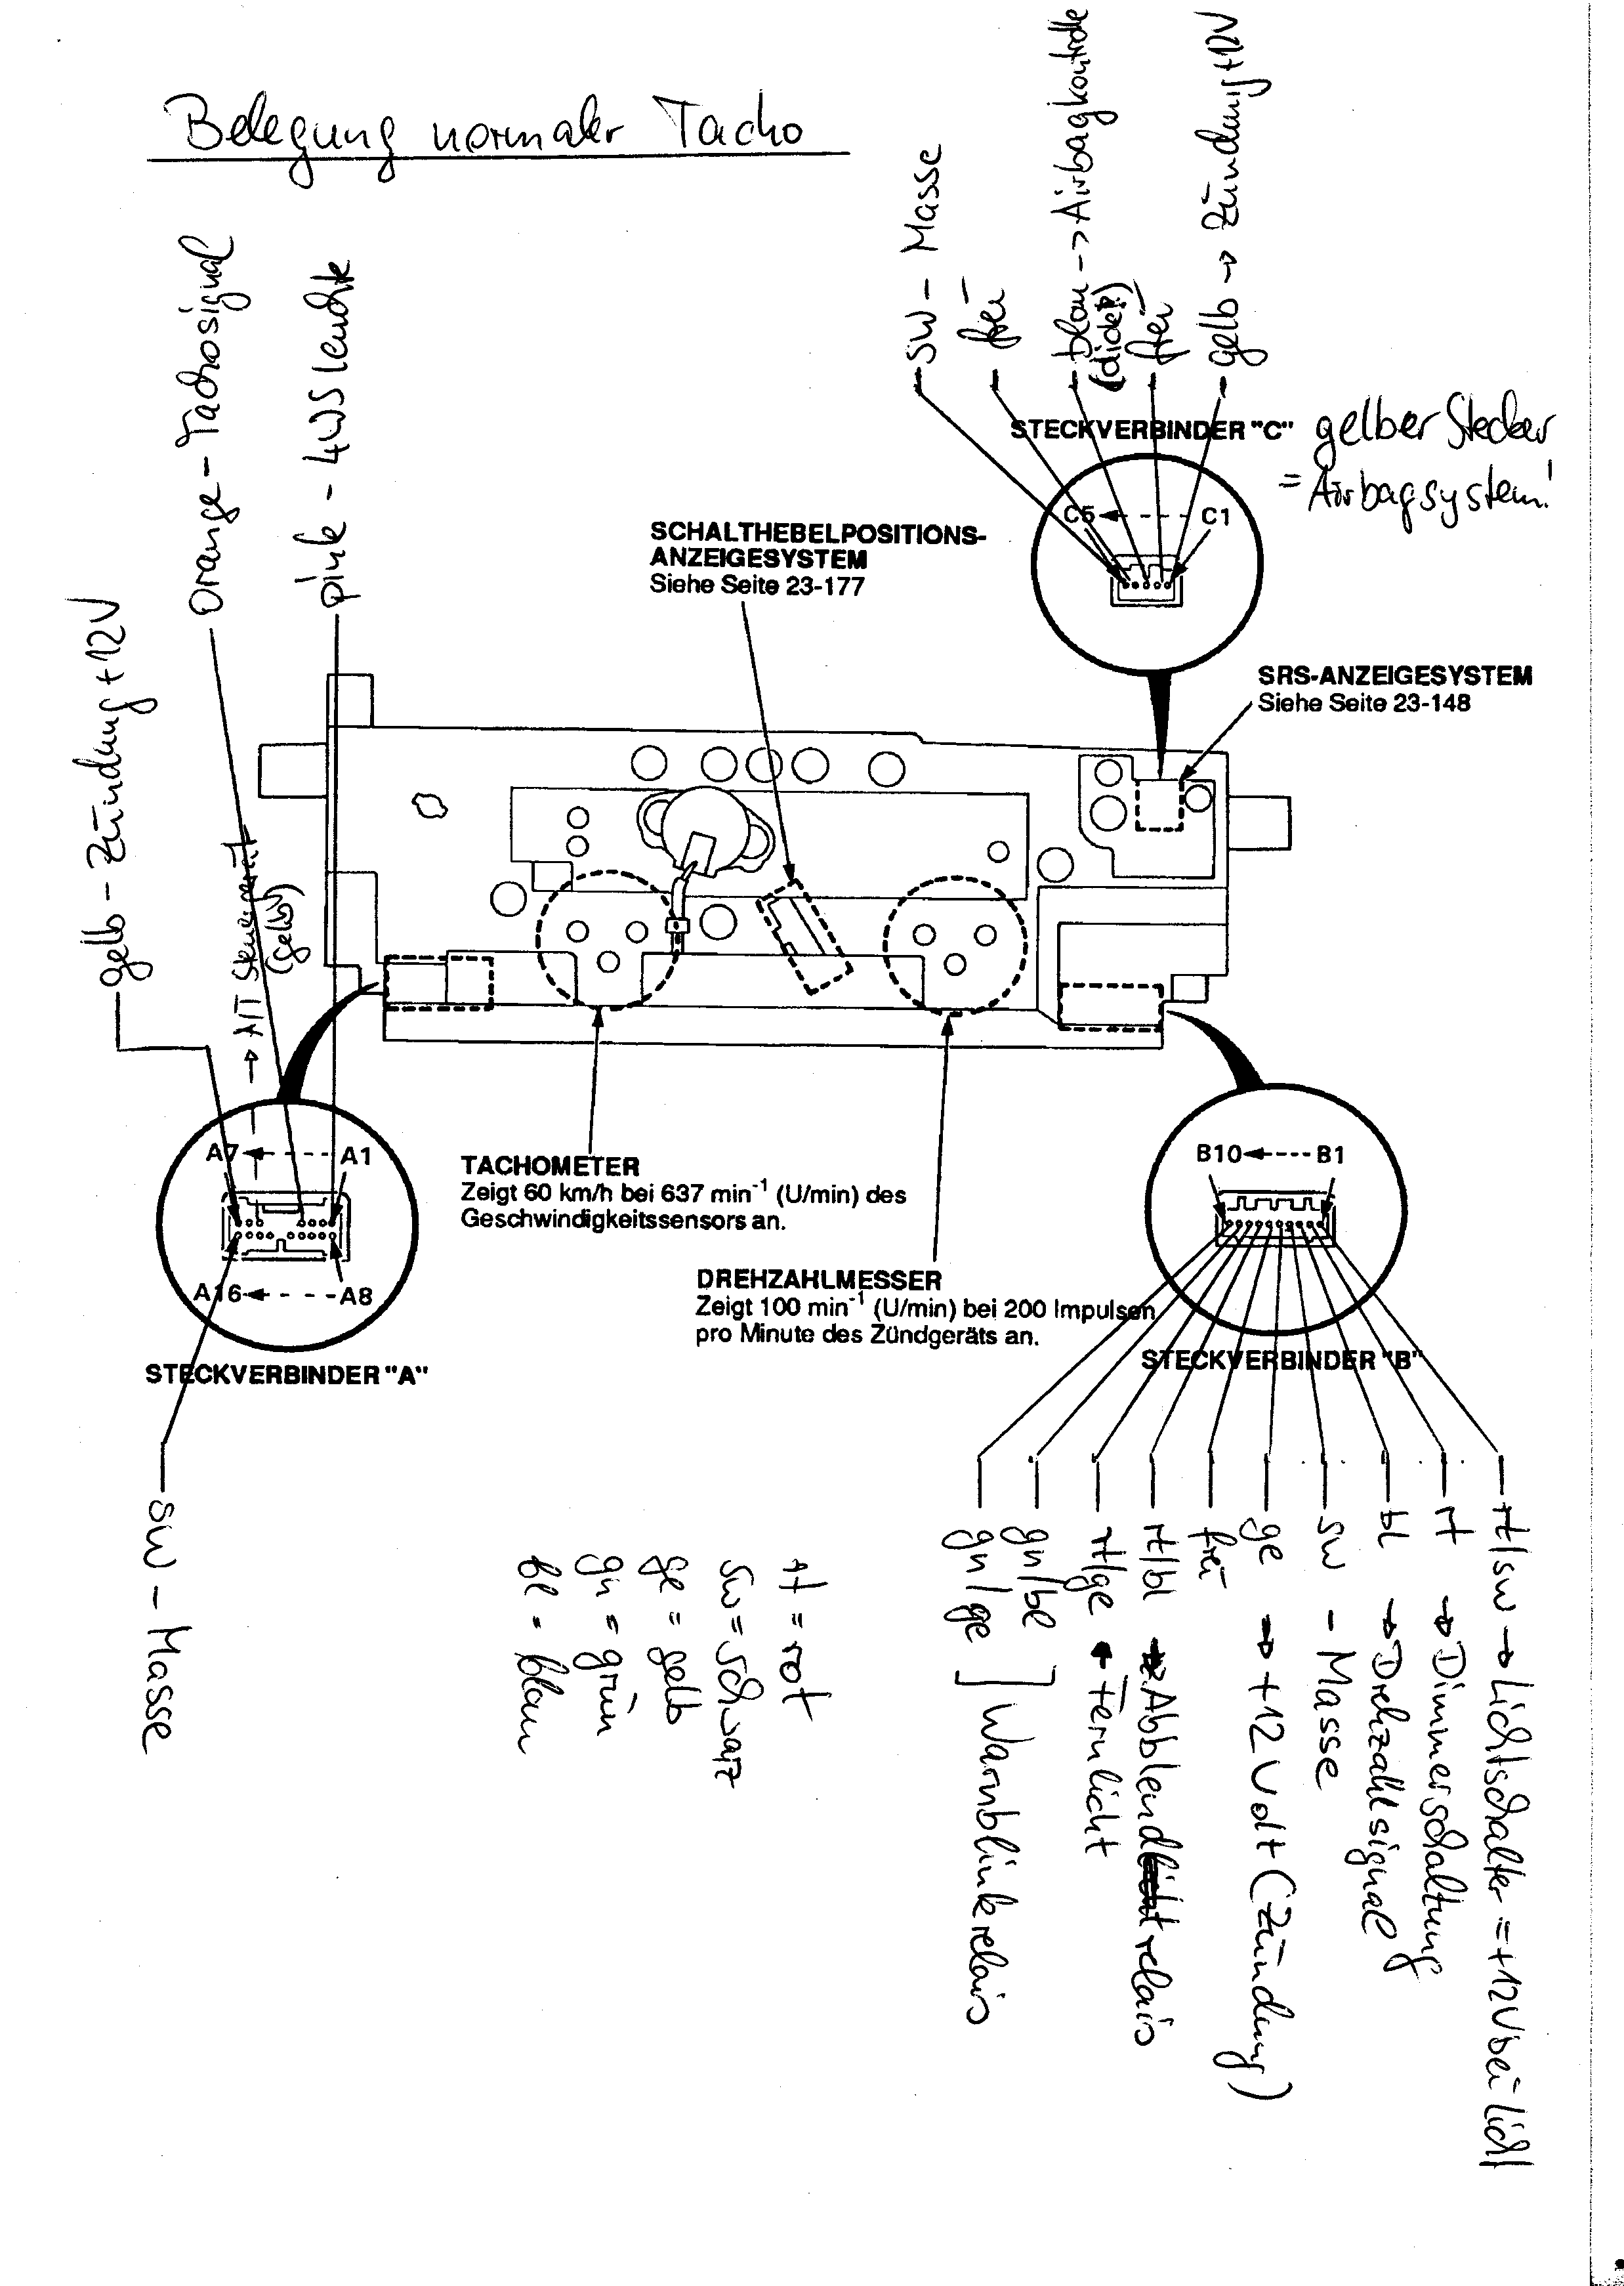 Belegung normaler Tacho
gelb - Zündung +12V
orange - Tachosignal
pink - 4WS Leuchte
→ A/T Steuergerät
(gelb)
SW - Masse
frei
blau -> Airbagkontrolle
(dick!)
frei
gelb → Zündung +12V
STECKVERBINDER "C"
gelber Stecker
= Airbagsystem!
C5
C1
SCHALTHEBELPOSITIONS-
ANZEIGESYSTEM
Siehe Seite 23-177
SRS-ANZEIGESYSTEM
Siehe Seite 23-148
A7
A1
A16
A8
STECKVERBINDER "A"
SW - Masse
TACHOMETER
Zeigt 60 km/h bei 637 min⁻¹ (U/min) des
Geschwindigkeitssensors an.
DREHZAHLMESSER
Zeigt 100 min⁻¹ (U/min) bei 200 Impulsen
pro Minute des Zündgeräts an.
B10
B1
STECKVERBINDER "B"
rt/sw → Lichtschalter = +12V bei Licht
rt → Dimmerschaltung
bl → Drehzahlsignal
sw - Masse
ge → +12 Volt (Zündung)
frei
rt/bl → Abblendlichtrelais
rt/ge Fernlicht
gn/bl
gn/ge
] Warnblinkrelais
rt = rot
sw = schwarz
ge = gelb
gn = grün
bl = blau